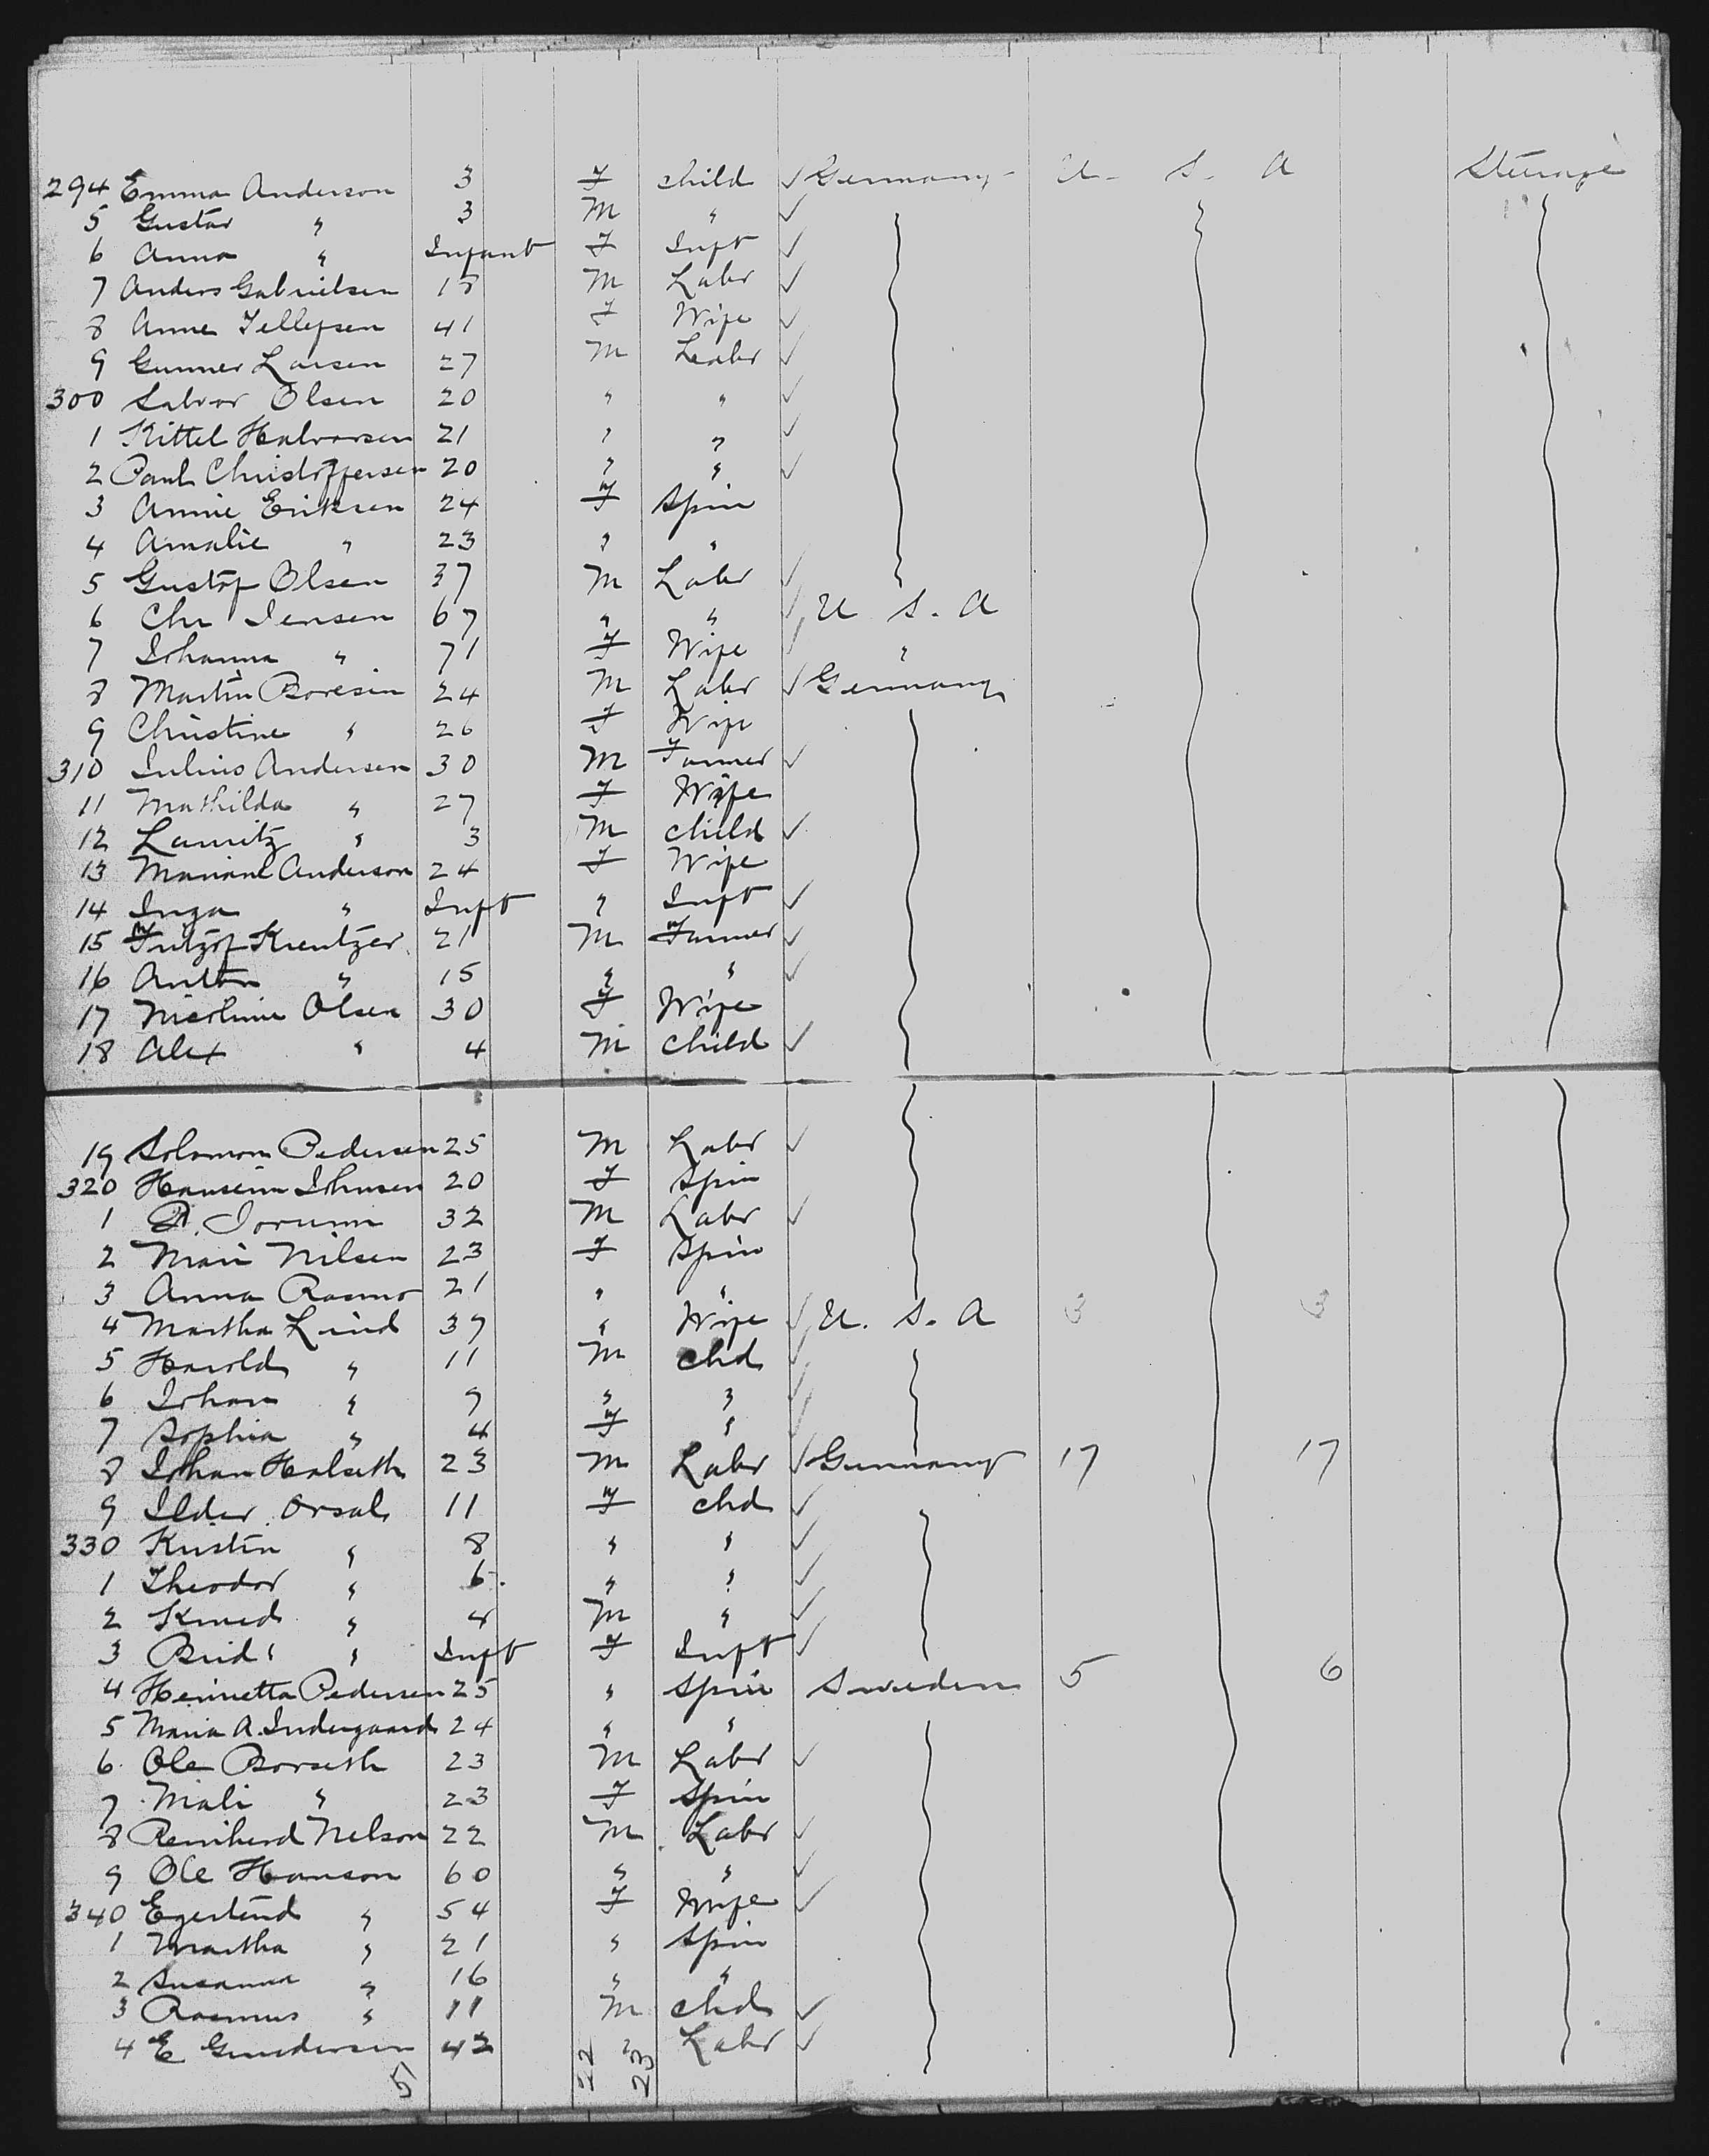 294 Emma Anderson 3 F child ✓ Germany U. S. A Steerage
5 Gustav " 3 M " ✓
6 Anna " Infant F Inft ✓
7 Anders Gabrielsen 18 M Labr ✓
8 Anne Tellefsen 41 F Wife ✓
9 Gunner Larsen 27 M Labr ✓
300 Salvor Olsen 20 " " ✓
1 Kittel Halvorsen 21 " " ✓
2 Paul Christoffersen 20 " " ✓
3 Annie Eriksen 24 F Spin
4 Amalie " 23 " "
5 Gustof Olsen 37 M Labr ✓
6 Chr Jensen 67 " " ✓ U S. A
7 Johanna " 71 F Wife "
8 Martin Boresen 24 M Labr ✓ Germany
9 Christine " 26 F Wife
310 Julius Andersen 30 M Farmer ✓
11 Mathilda " 27 F Wife
12 Lauritz " 3 M child ✓
13 Mariane Anderson 24 F Wife
14 Inga " Inft " Inft ✓
15 Fritzof Kreutzer 21 M Farmer ✓
16 Anton " 15 " " ✓
17 Olsen 30 F Wife
18 Alex " 4 M child ✓
19 Solomon Pedersen 25 M Labr ✓
320 Johnsen 20 F Spin
1 32 M Labr ✓
2 Mari Nilsen 23 F Spin
3 Anna Rasmo 21 " "
4 Martha Lind 37 " Wife ✓ U. S. A 3 3
5 Harold " 11 M chd ✓
6 Johan " 9 " " ✓
7 Sophia " 4 F " ✓
8 Johan Halseth 23 M Labr ✓ Germany 17 17
9 Orsal 11 F chd ✓
330 Kristin " 8 " " ✓
1 Theodor " 6 " " ✓
2 Knud " 4 M " ✓
3 " Inft F Inft ✓
4 Henrietta Pedersen 25 " Spin Sweden 5 6
5 Maria A. Indergaard 24 " "
6 Ole Borseth 23 M Labr ✓
7 Mali " 23 F Spin
8 Nelson 22 M Labr ✓
9 Ole Hanson 60 " " ✓
340 " 54 F Wife ✓
1 Martha " 21 " Spin
2 Susanna " 16 " "
3 Rasmus " 11 M chd ✓
4 E Gundersen 42 " Labr ✓
5 22 23